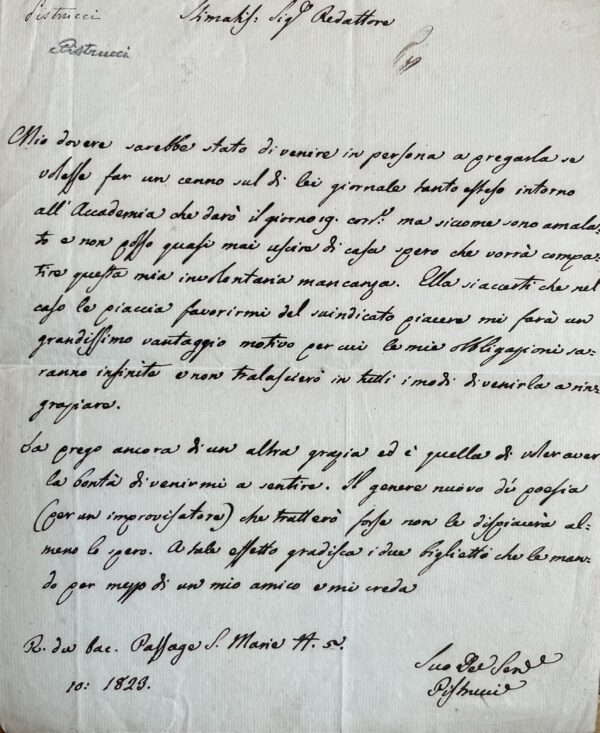 Pistrucci
Stimatiss: Sig.e Redattore
Pistrucci
Mio dovere sarebbe stato di venire in persona a pregarla se
volesse far un cenno sul di lei giornale tanto esteso intorno
all'Accademia che darò il giorno 19. corr.e ma siccome sono amala-
to e non posso quasi mai uscire di casa spero che vorrà compa-
tire questa mia involontaria mancanza. Ella si accerti che nel
caso le piaccia favorirmi del suindicato piacere mi farà un
grandissimo vantaggio motivo per cui le mie obbligazioni sa-
ranno infinite e non tralascierò in tutti i modi di venirla a rin-
graziare.
La prego ancora di un altra grazia ed è quella di voler aver
la bontà di venirmi a sentire. Il genere nuovo di poesia
(per un improvisatore) che tratterò forse non le dispiacerà al-
meno lo spero. A tale effetto gradisca i due biglietti che le man-
do per mezzo di un mio amico e mi creda
R. du bac. Passage S. Marie N. 5.
10: 1823.
Suo De Ser.e
Pistrucci